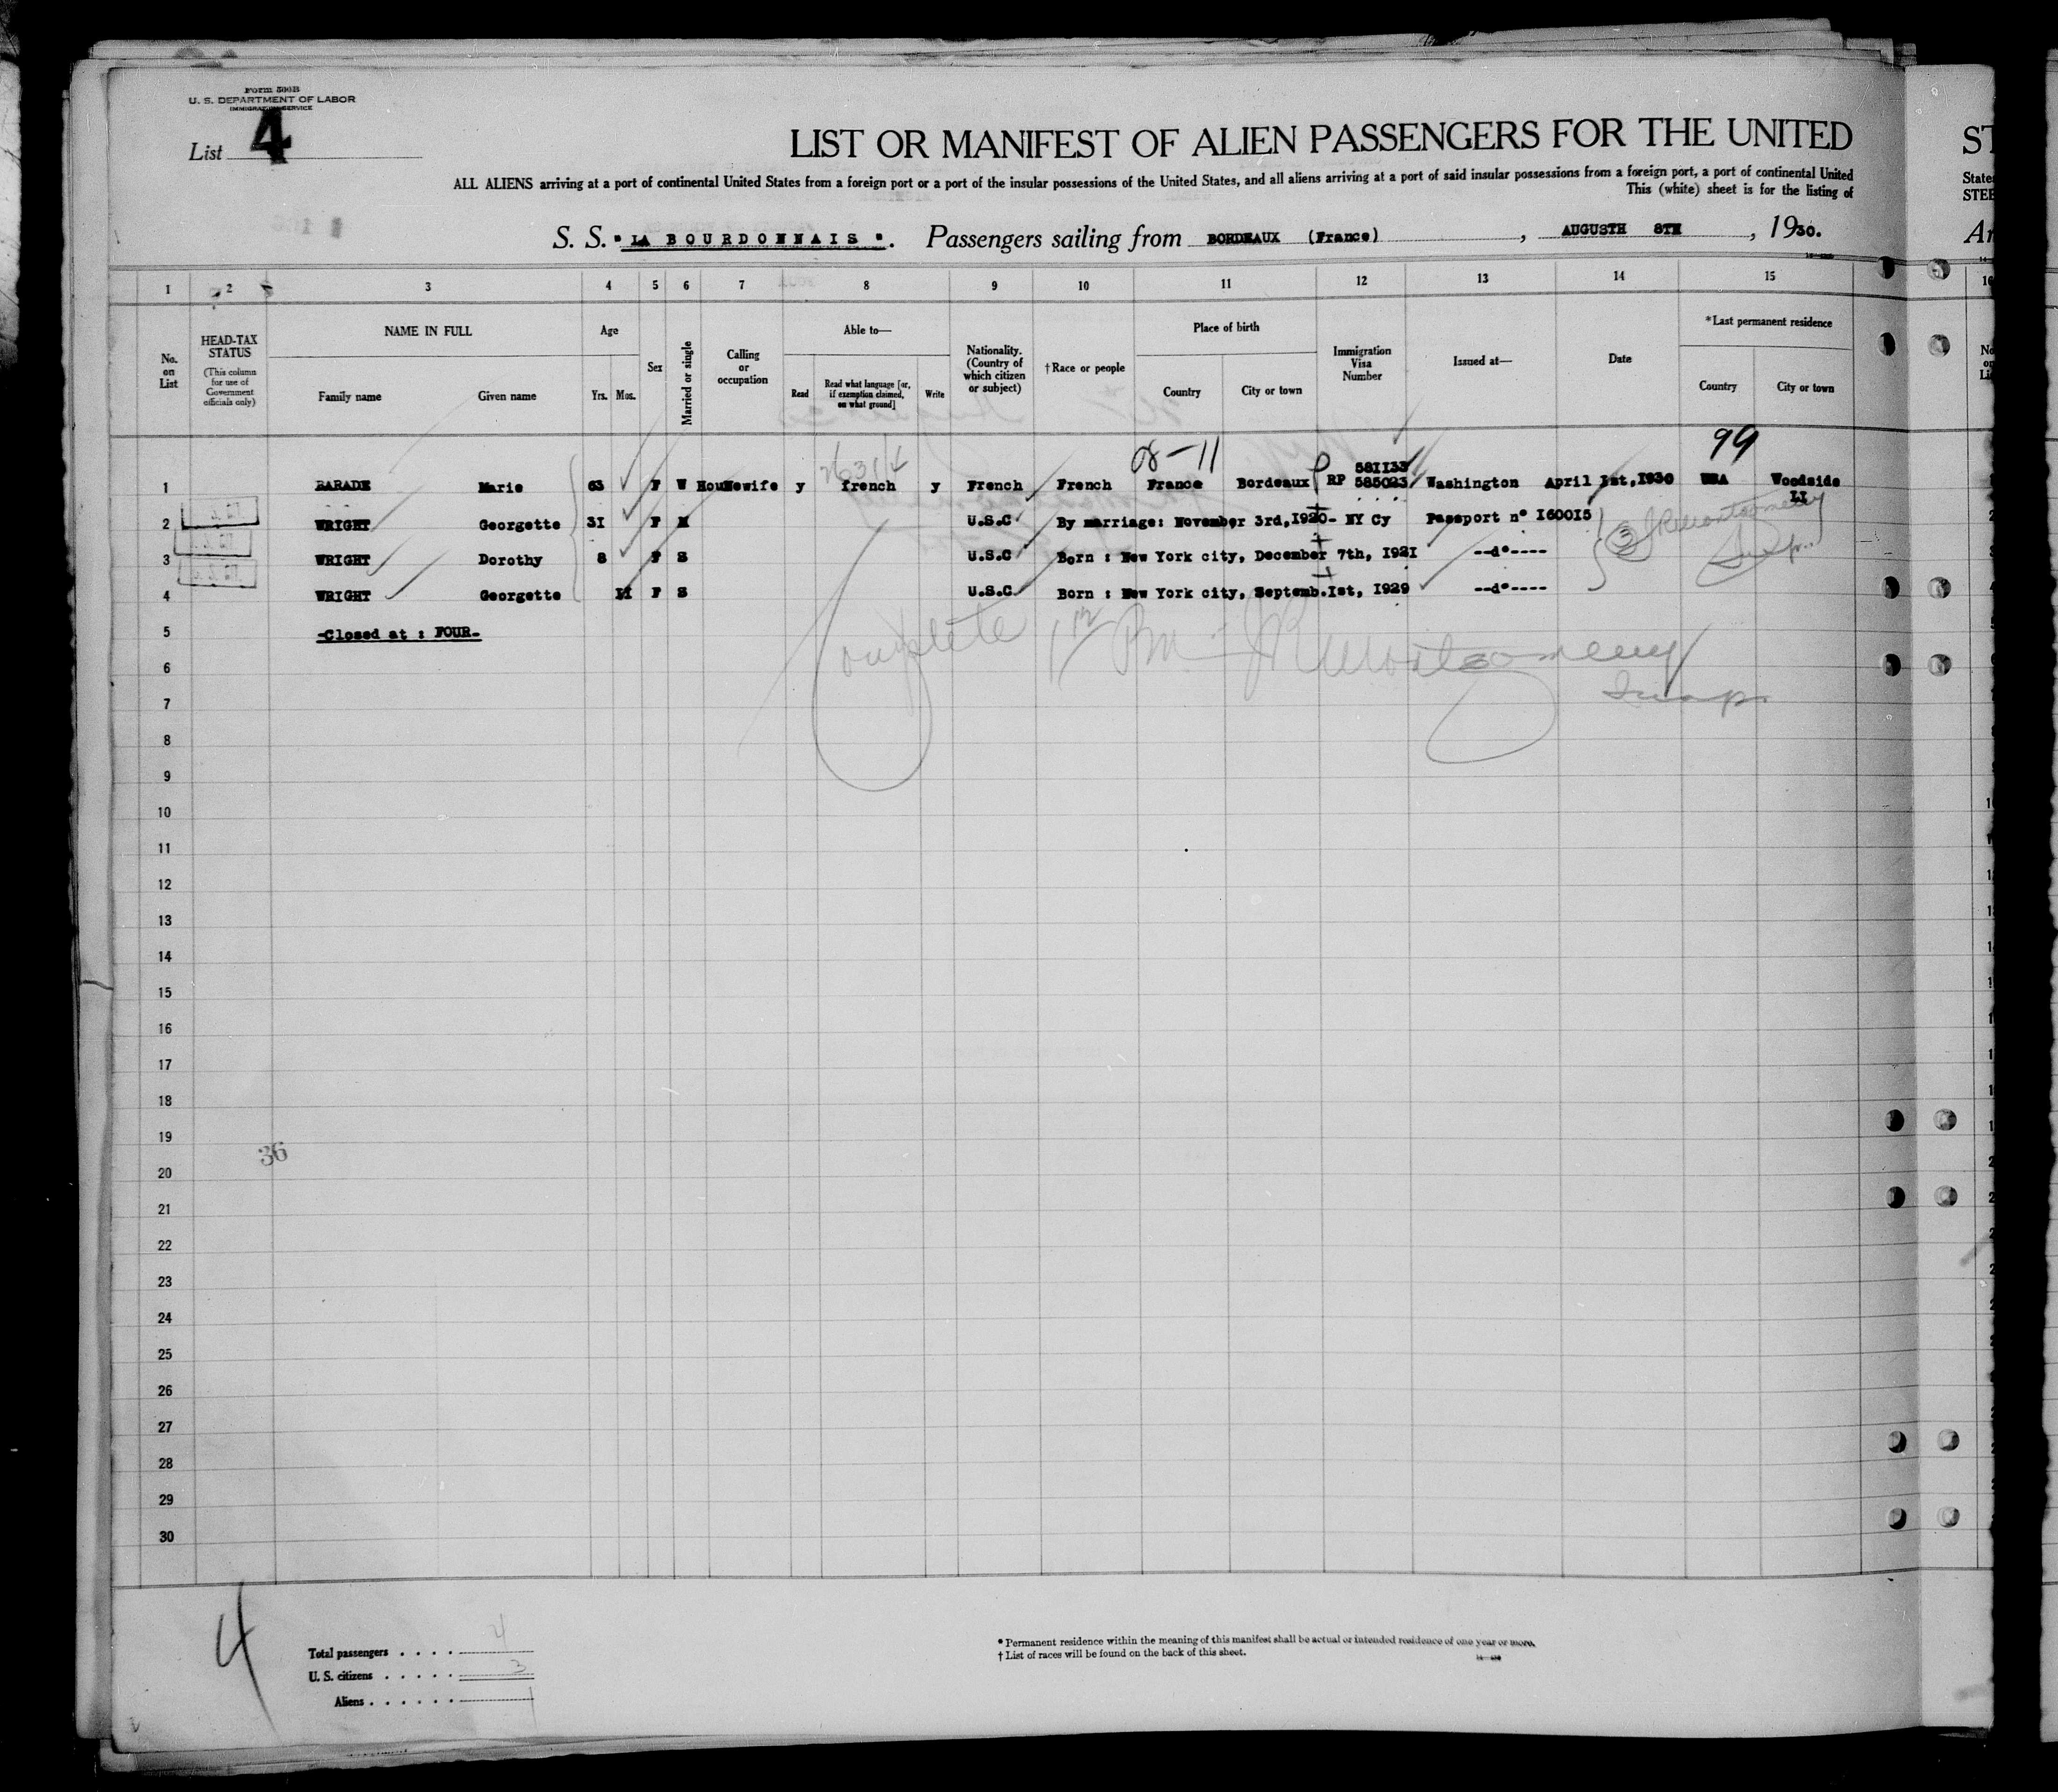 Form 500B
U. S. DEPARTMENT OF LABOR
IMMIGRATION SERVICE
List 4
LIST OR MANIFEST OF ALIEN PASSENGERS FOR THE UNITED
ALL ALIENS arriving at a port of continental United States from a foreign port or a port of the insular possessions of the United States, and all aliens arriving at a port of said insular possessions from a foreign port, a port of continental United
This (white) sheet is for the listing of
S. S. "LA BOURDONNAIS". Passengers sailing from BORDEAUX (France), AUGUSTH 8TH, 1930.
1 2 3 4 5 6 7 8 9 10 11 12 13 14 15
No. on List
HEAD-TAX STATUS
(This column for use of Government officials only)
NAME IN FULL
Family name Given name
Age
Yrs. Mos.
Sex
Married or single
Calling or occupation
Able to—
Read
Read what language [or, if exemption claimed, on what ground]
Write
Nationality. (Country of which citizen or subject)
†Race or people
Place of birth
Country City or town
Immigration Visa Number
Issued at—
Date
*Last permanent residence
Country City or town
08-11 99
581133
1 BARADE Marie 63 F W Housewife y french y French French France Bordeaux RP 585023 Washington April Ist, 1930 USA Woodside
LI
2 WRIGHT Georgette 3I F M U.S.C By marriage: November 3rd, I920- NY Cy Passport n° I600I5
3 WRIGHT Dorothy 8 F S U.S.C Born : New York city, December 7th, I92I --d°----
4 WRIGHT Georgette II F S U.S.C Born : New York city, Septemb. Ist, I929 --d°----
5 -Closed at : FOUR-
Complete JR Montgomery
6
Insp.
7
8
9
10
11
12
13
14
15
16
17
18
19
36
20
21
22
23
24
25
26
27
28
29
30
4
Total passengers . . . . 4
U. S. citizens . . . . . 3
Aliens . . . . . . 1
* Permanent residence within the meaning of this manifest shall be actual or intended residence of one year or more.
† List of races will be found on the back of this sheet.
ST
States
STEE
Ar